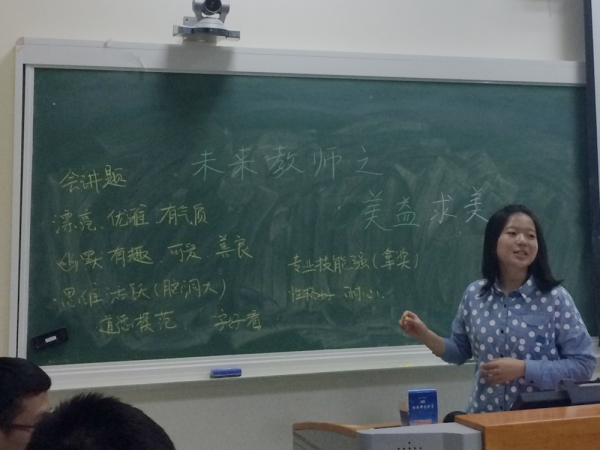 未来教师之
美益求美
会讲题
漂亮、优雅、有气质
幽默 有趣、可爱、善良
思维活跃(脑洞大)
道德模范、字好看
专业技能强(拿奖)
耐心